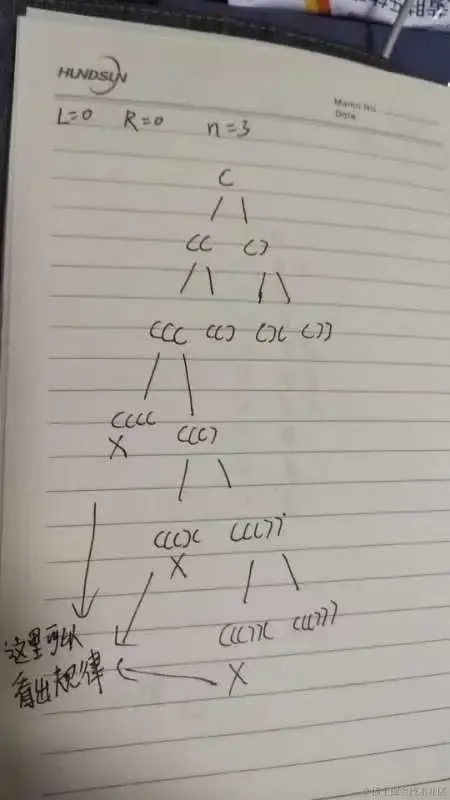 HUNDSUN
Memo No.
Date
L=0 R=0 n=3
(
(( ()
((( (() ()( ())
((((
X
((()
((()( ((())
X
((())( ((()))
X
这里可以
看出规律
@稀土掘金技术社区